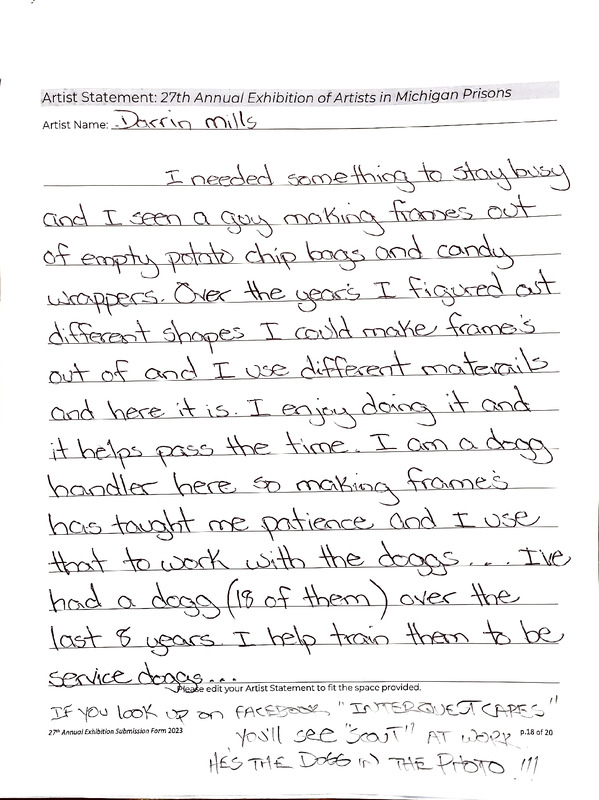 Artist Statement: 27th Annual Exhibition of Artists in Michigan Prisons
Artist Name: Darrin Mills
I needed something to stay busy
and I seen a guy making frames out
of empty potato chip bags and candy
wrappers. Over the year's I figured out
different shapes I could make frame's
out of and I use different materails
and here it is. I enjoy doing it and
it helps pass the time. I am a dogg
handler here so making frame's
has taught me patience and I use
that to work with the doggs... I've
had a dogg (18 of them) over the
last 8 years. I help train them to be
service doggs...
Please edit your Artist Statement to fit the space provided.
IF YOU LOOK UP ON FACEBOOK "INTERQUESTCARES"
27th Annual Exhibition Submission Form 2023
YOU'll SEE "SCOUT" AT WORK
p.18 of 20
HE'S THE DOGG IN THE PHOTO !!!